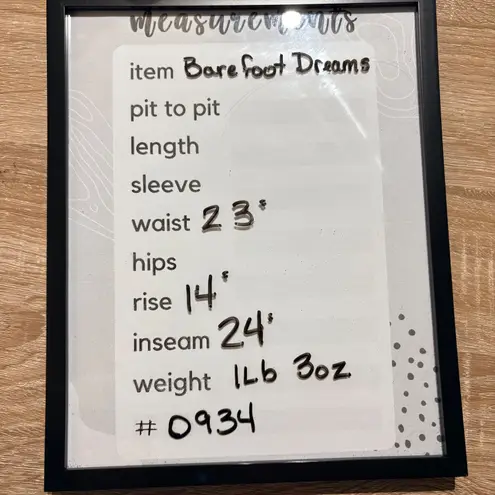 measurements
item Barefoot Dreams
pit to pit
length
sleeve
waist 23"
hips
rise 14"
inseam 24"
weight 1Lb 3oz
# 0934